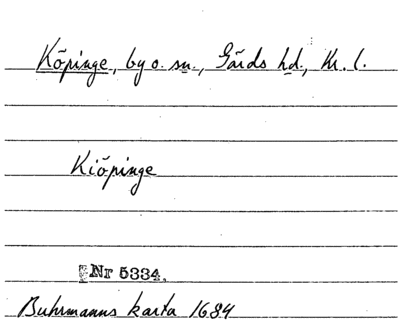 Köpinge, by o. sn., Gärds hd., Kr. l.
Kiöpinge
Nr 5334.
Buhrmanns karta 1684